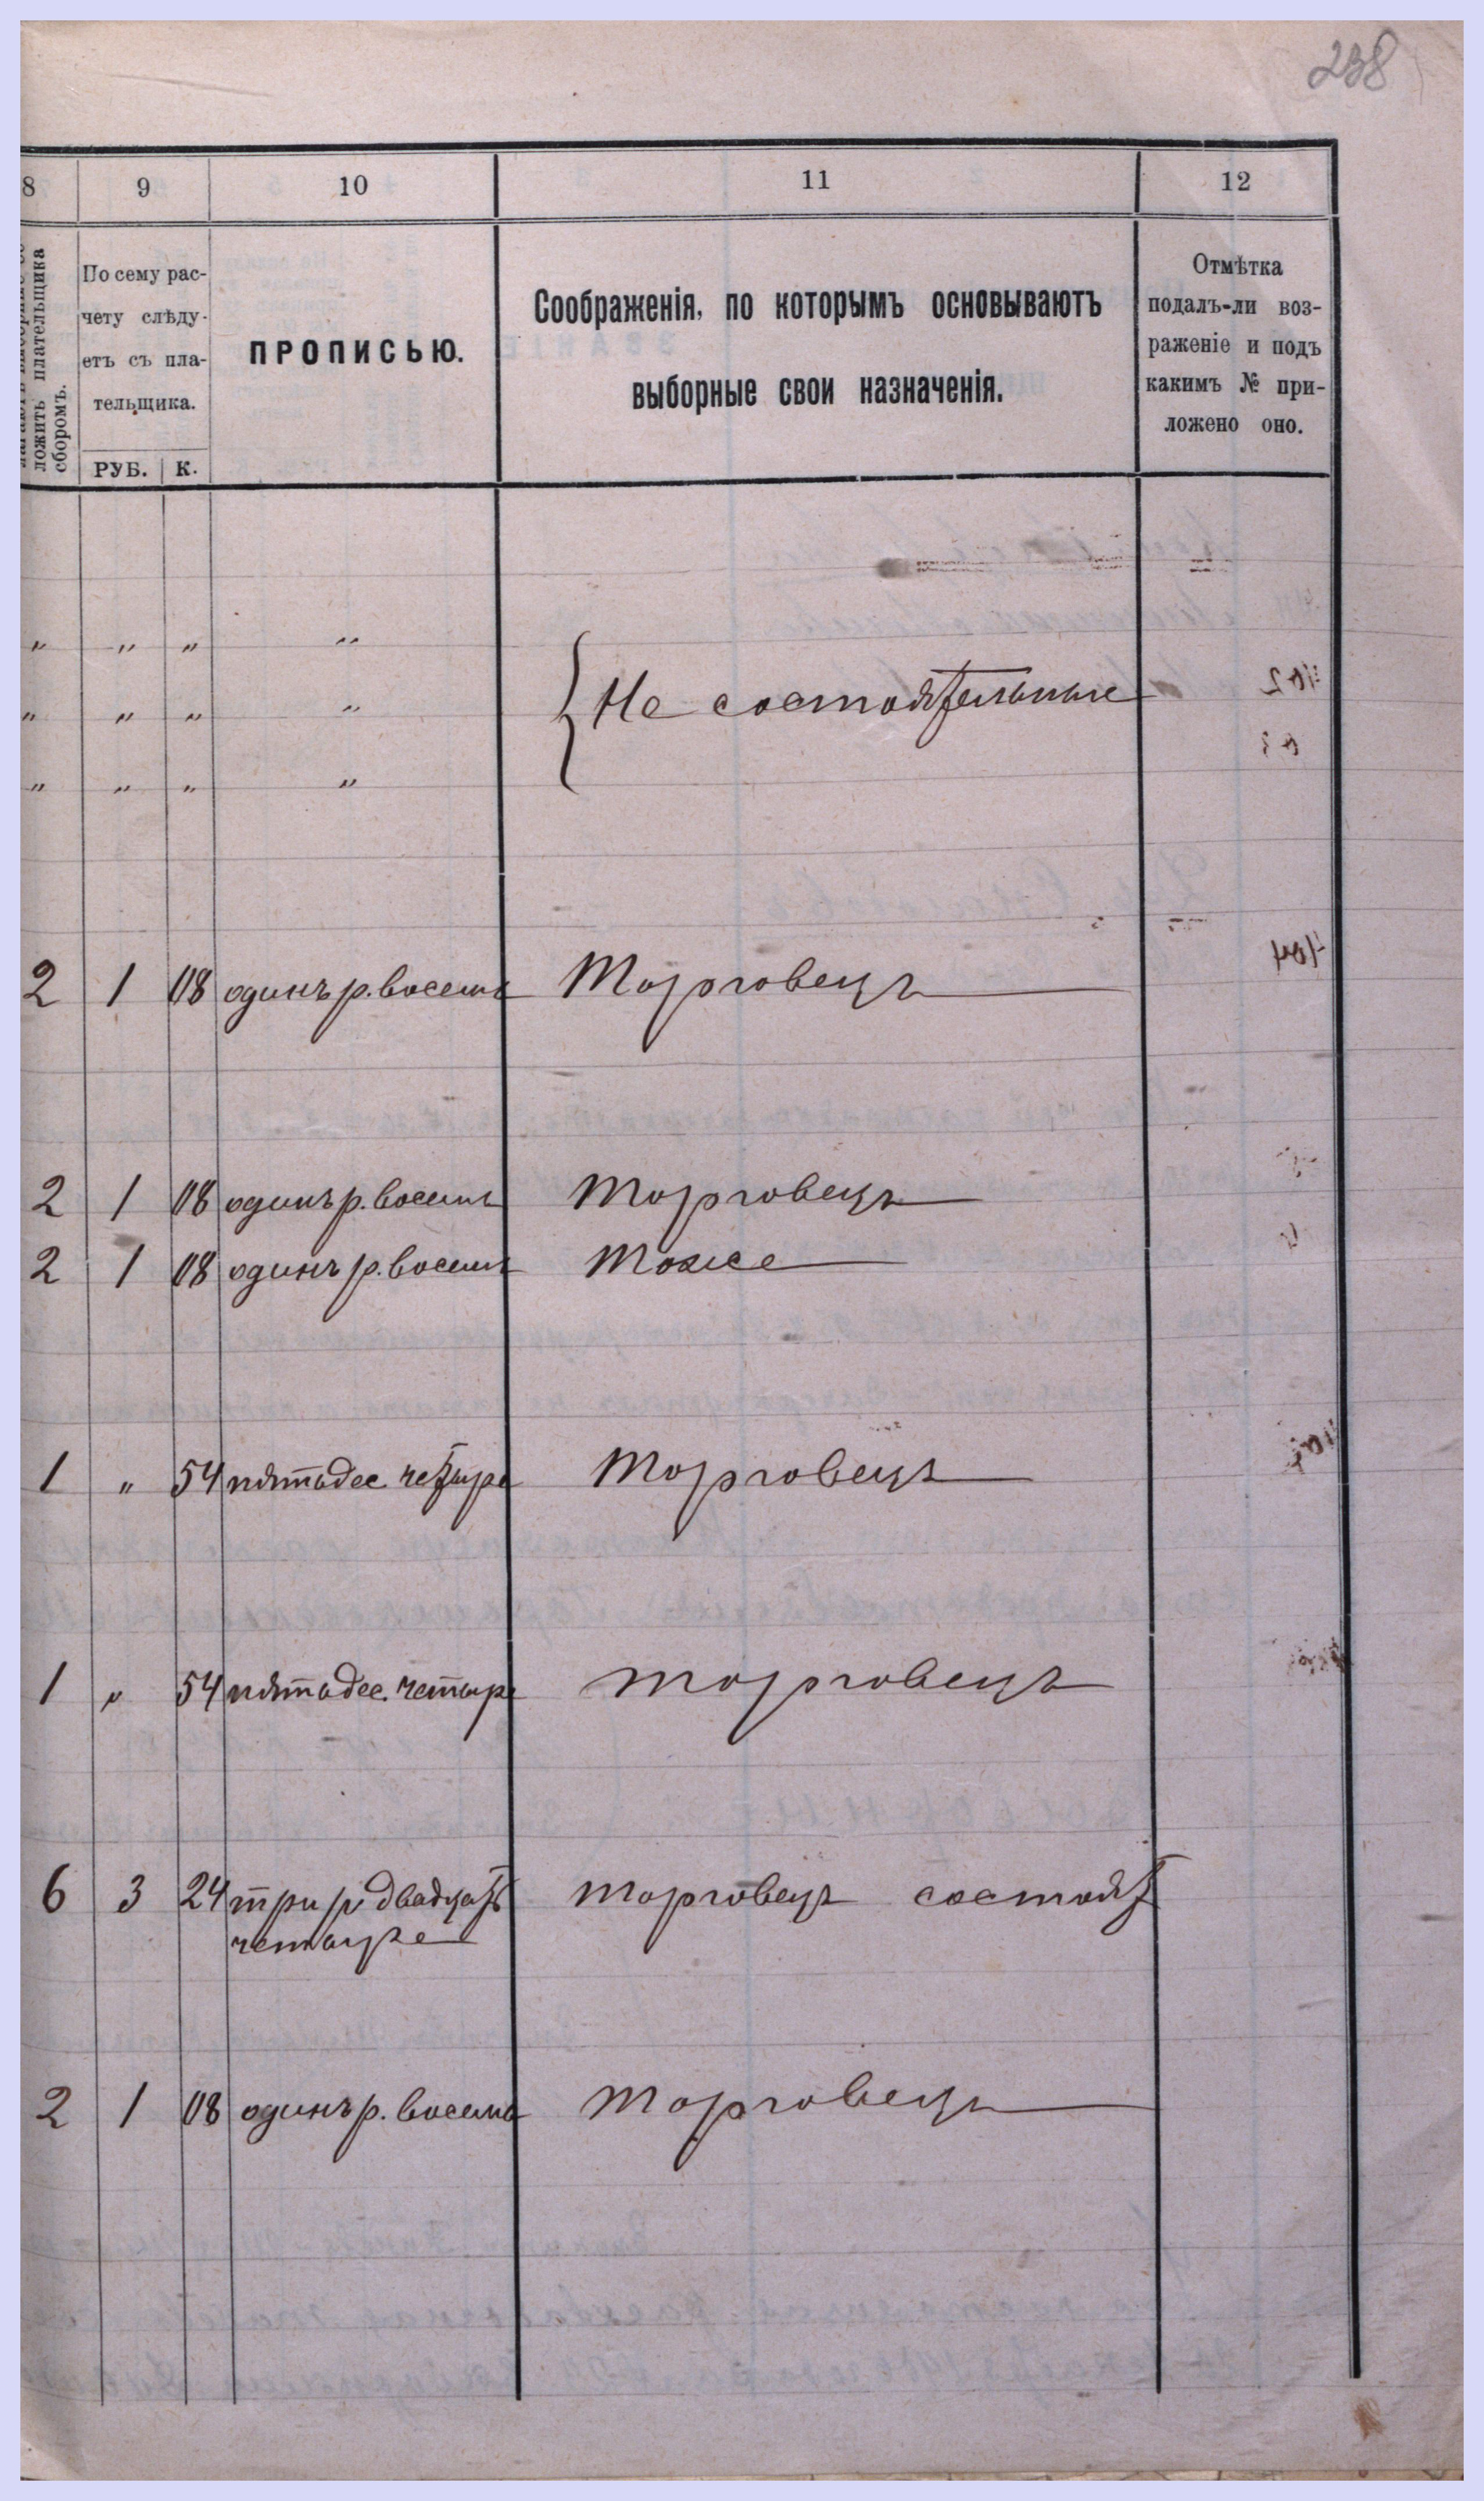 238
8 9 10 11 12
ложить плательщика
сборомъ.
По сему рас-
чету слѣду-
етъ съ пла-
тельщика.
РУБ. К.
ПРОПИСЬЮ.
Соображенія, по которымъ основываютъ
выборные свои назначенія.
Отмѣтка
подалъ-ли воз-
раженіе и подъ
какимъ № при-
ложено оно.
„ „ „ „
„ „ „ „ Не состоятельные
„ „ „ „
2 1 08 одинъ р. восемь Торговецъ
2 1 08 одинъ р. восемь Торговецъ
2 1 08 одинъ р. восемь Тоже
1 „ 54 пятьдес. четыре Торговецъ
1 „ 54 пятьдес. четыре торговецъ
6 3 24 три р двадцать торговецъ состоят
четыре
2 1 08 одинъ р. восемь торговецъ